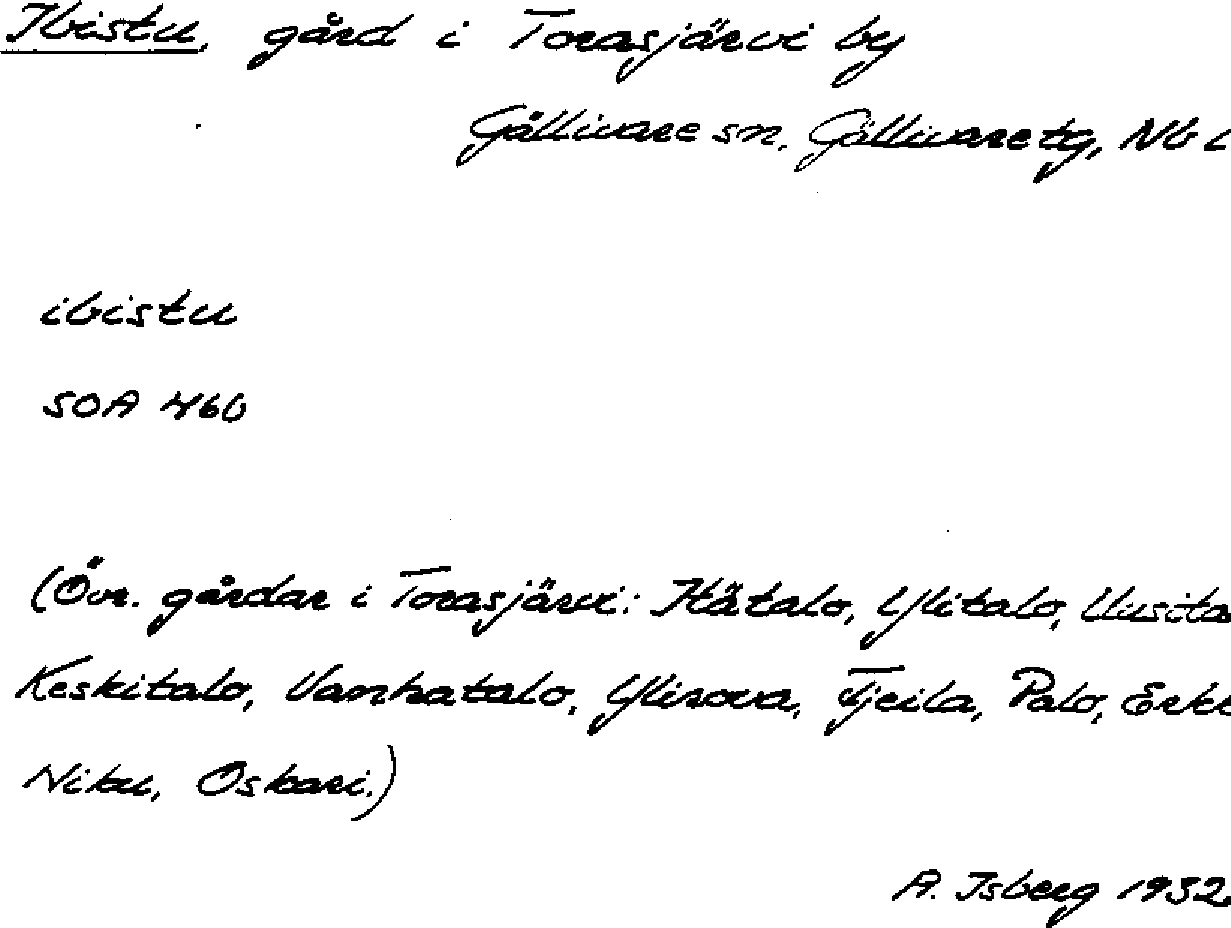 Ibistu, gård i Torasjärvi by
Gällivare sn, Gällivare tg, Nb l
ibistu
SOA 460
(Övr. gårdar i Torasjärvi: Ylitalo, Uusita
Keskitalo, Vanhatalo, Ylirova, Tjeila, Palo, Erke
Niku, Oskari.)
A. Isberg 1932.